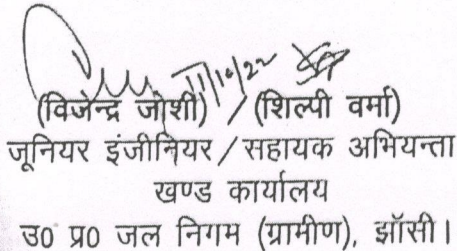 11/10/22
(विजेन्द्र जोशी) / (शिल्पी वर्मा)
जूनियर इंजीनियर / सहायक अभियन्ता
खण्ड कार्यालय
उ0 प्र0 जल निगम (ग्रामीण), झॉसी।